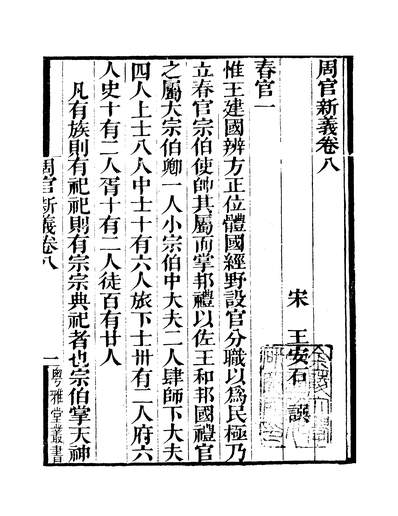 周官新義卷八
宋 王安石 譔
春官一
惟王建國辨方正位體國經野設官分職以爲民極乃
立春官宗伯使帥其屬而掌邦禮以佐王和邦國禮官
之屬大宗伯卿一人小宗伯中大夫二人肆師下大夫
四人上士八人中士十有六人旅下士卅有二人府六
人史十有二人胥十有二人徒百有廿人
凡有族則有祀祀則有宗宗典祀者也宗伯掌天神
周官新義卷八
一
粵雅堂叢書